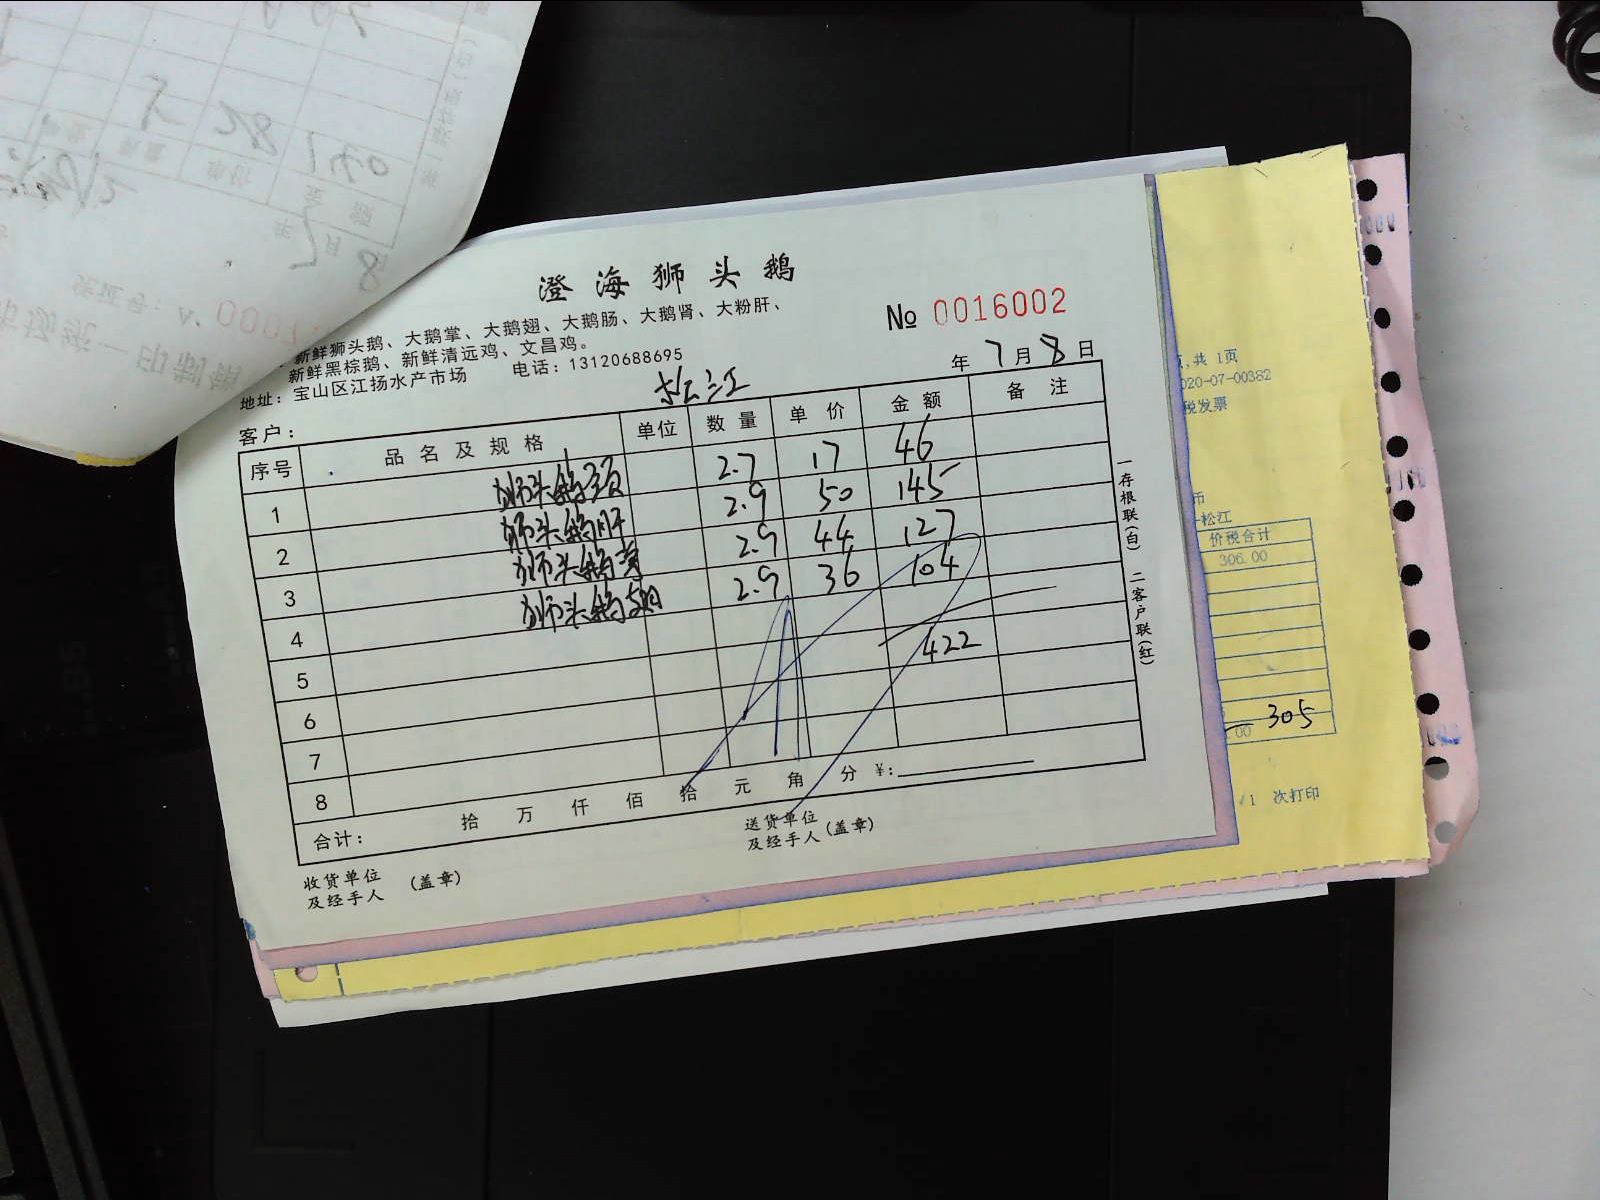 澄海狮头鹅
新鲜狮头鹅、大鹅掌、大鹅翅、大鹅肠、大鹅肾、大粉肝、
新鲜黑棕鹅、新鲜清远鸡、文昌鸡。
地址：宝山区江扬水产市场 电话：13120688695
№ 0016002
年 7 月 8 日
客户： 松江
序号 品名及规格 单位 数量 单价 金额 备注
1 狮头鹅颈 2.7 17 46
2 狮头鹅肝 2.9 50 145
3 狮头鹅掌 2.9 44 127
4 狮头鹅翅 2.9 36 104
5 422
6
7
8
合计： 拾 万 仟 佰 拾 元 角 分 ¥:
收货单位及经手人 (盖章)
送货单位及经手人 (盖章)
一存根联(白) 二客户联(红)
页,共 1页
020-07-00382
税发票
币
松江
价税合计
306.00
.00 305
/1 次打印